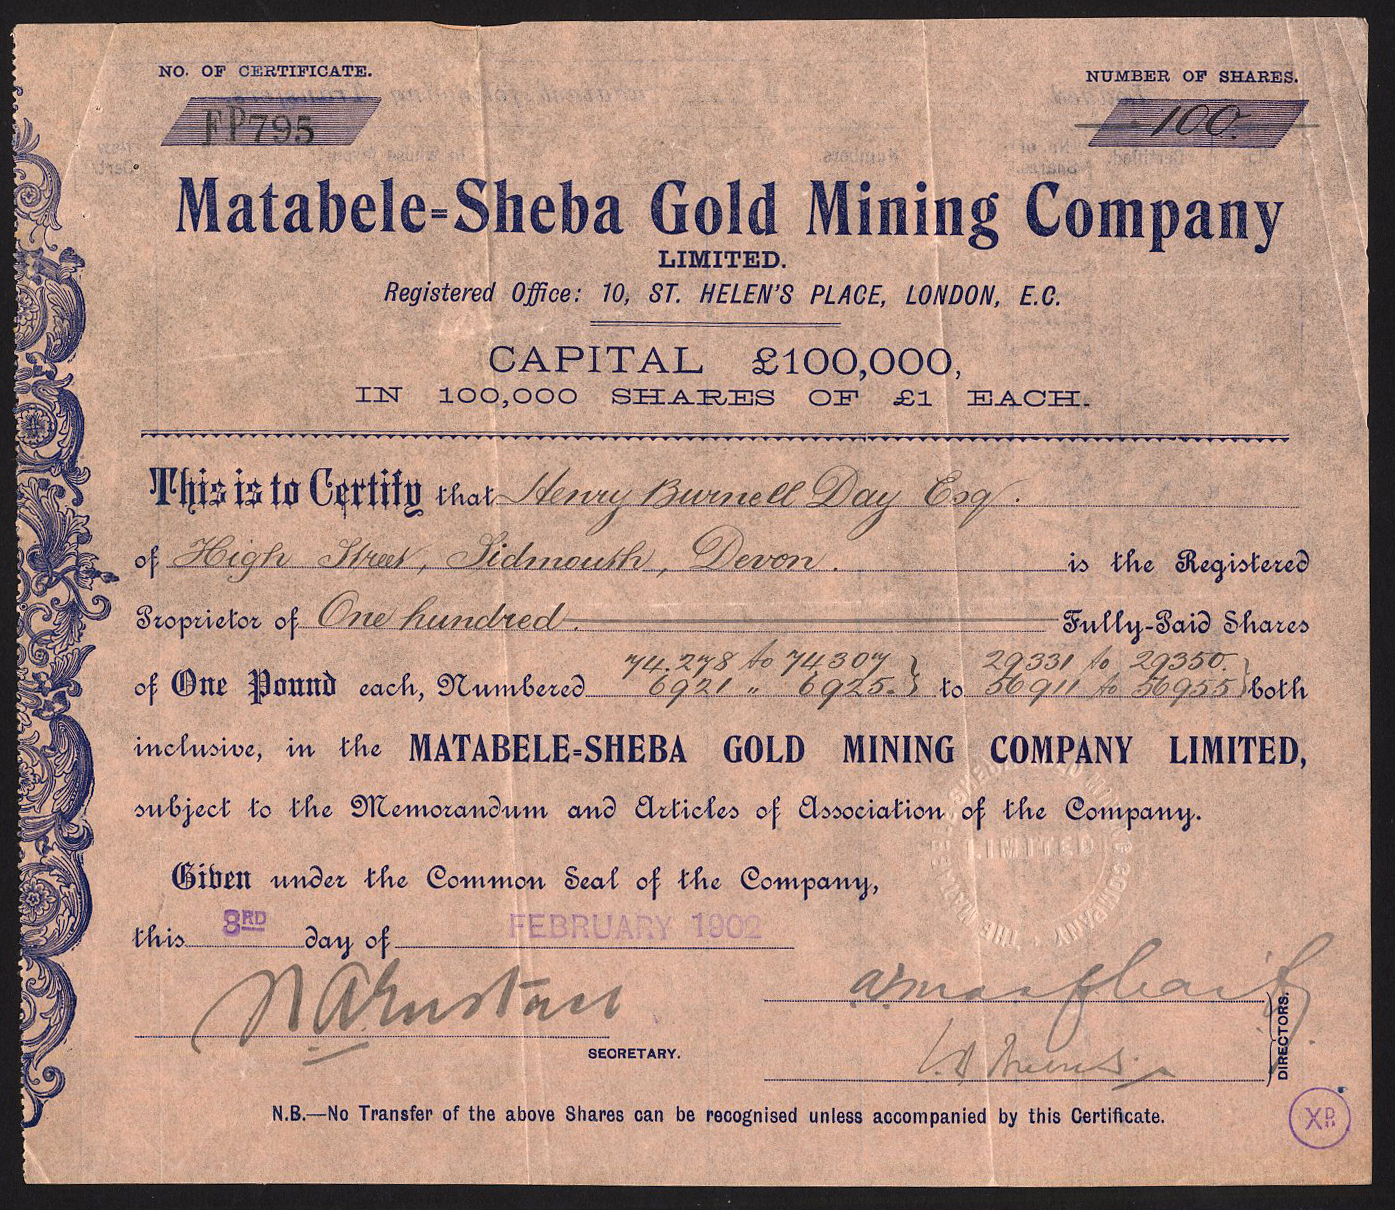 NO. OF CERTIFICATE.
NUMBER OF SHARES.
FP795
100.
Matabele=Sheba Gold Mining Company
LIMITED.
Registered Office: 10, ST. HELEN'S PLACE, LONDON, E.C.
CAPITAL £100,000,
IN 100,000 SHARES OF £1 EACH.
This is to Certify that Henry Burnell Day Esq.
of High Street, Sidmouth, Devon. is the Registered
Proprietor of One hundred. Fully-Paid Shares
74.278 to 74307 } 29331 to 29350. }
of One Pound each, Numbered 6921 " 6925. } to 56911 to 56955 } both
inclusive, in the MATABELE=SHEBA GOLD MINING COMPANY LIMITED,
subject to the Memorandum and Articles of Association of the Company.
THE MATABELE-SHEBA GOLD MINING COMPANY
LIMITED
Given under the Common Seal of the Company,
this 3RD day of FEBRUARY 1902
SECRETARY.
DIRECTORS.
N.B.—No Transfer of the above Shares can be recognised unless accompanied by this Certificate.